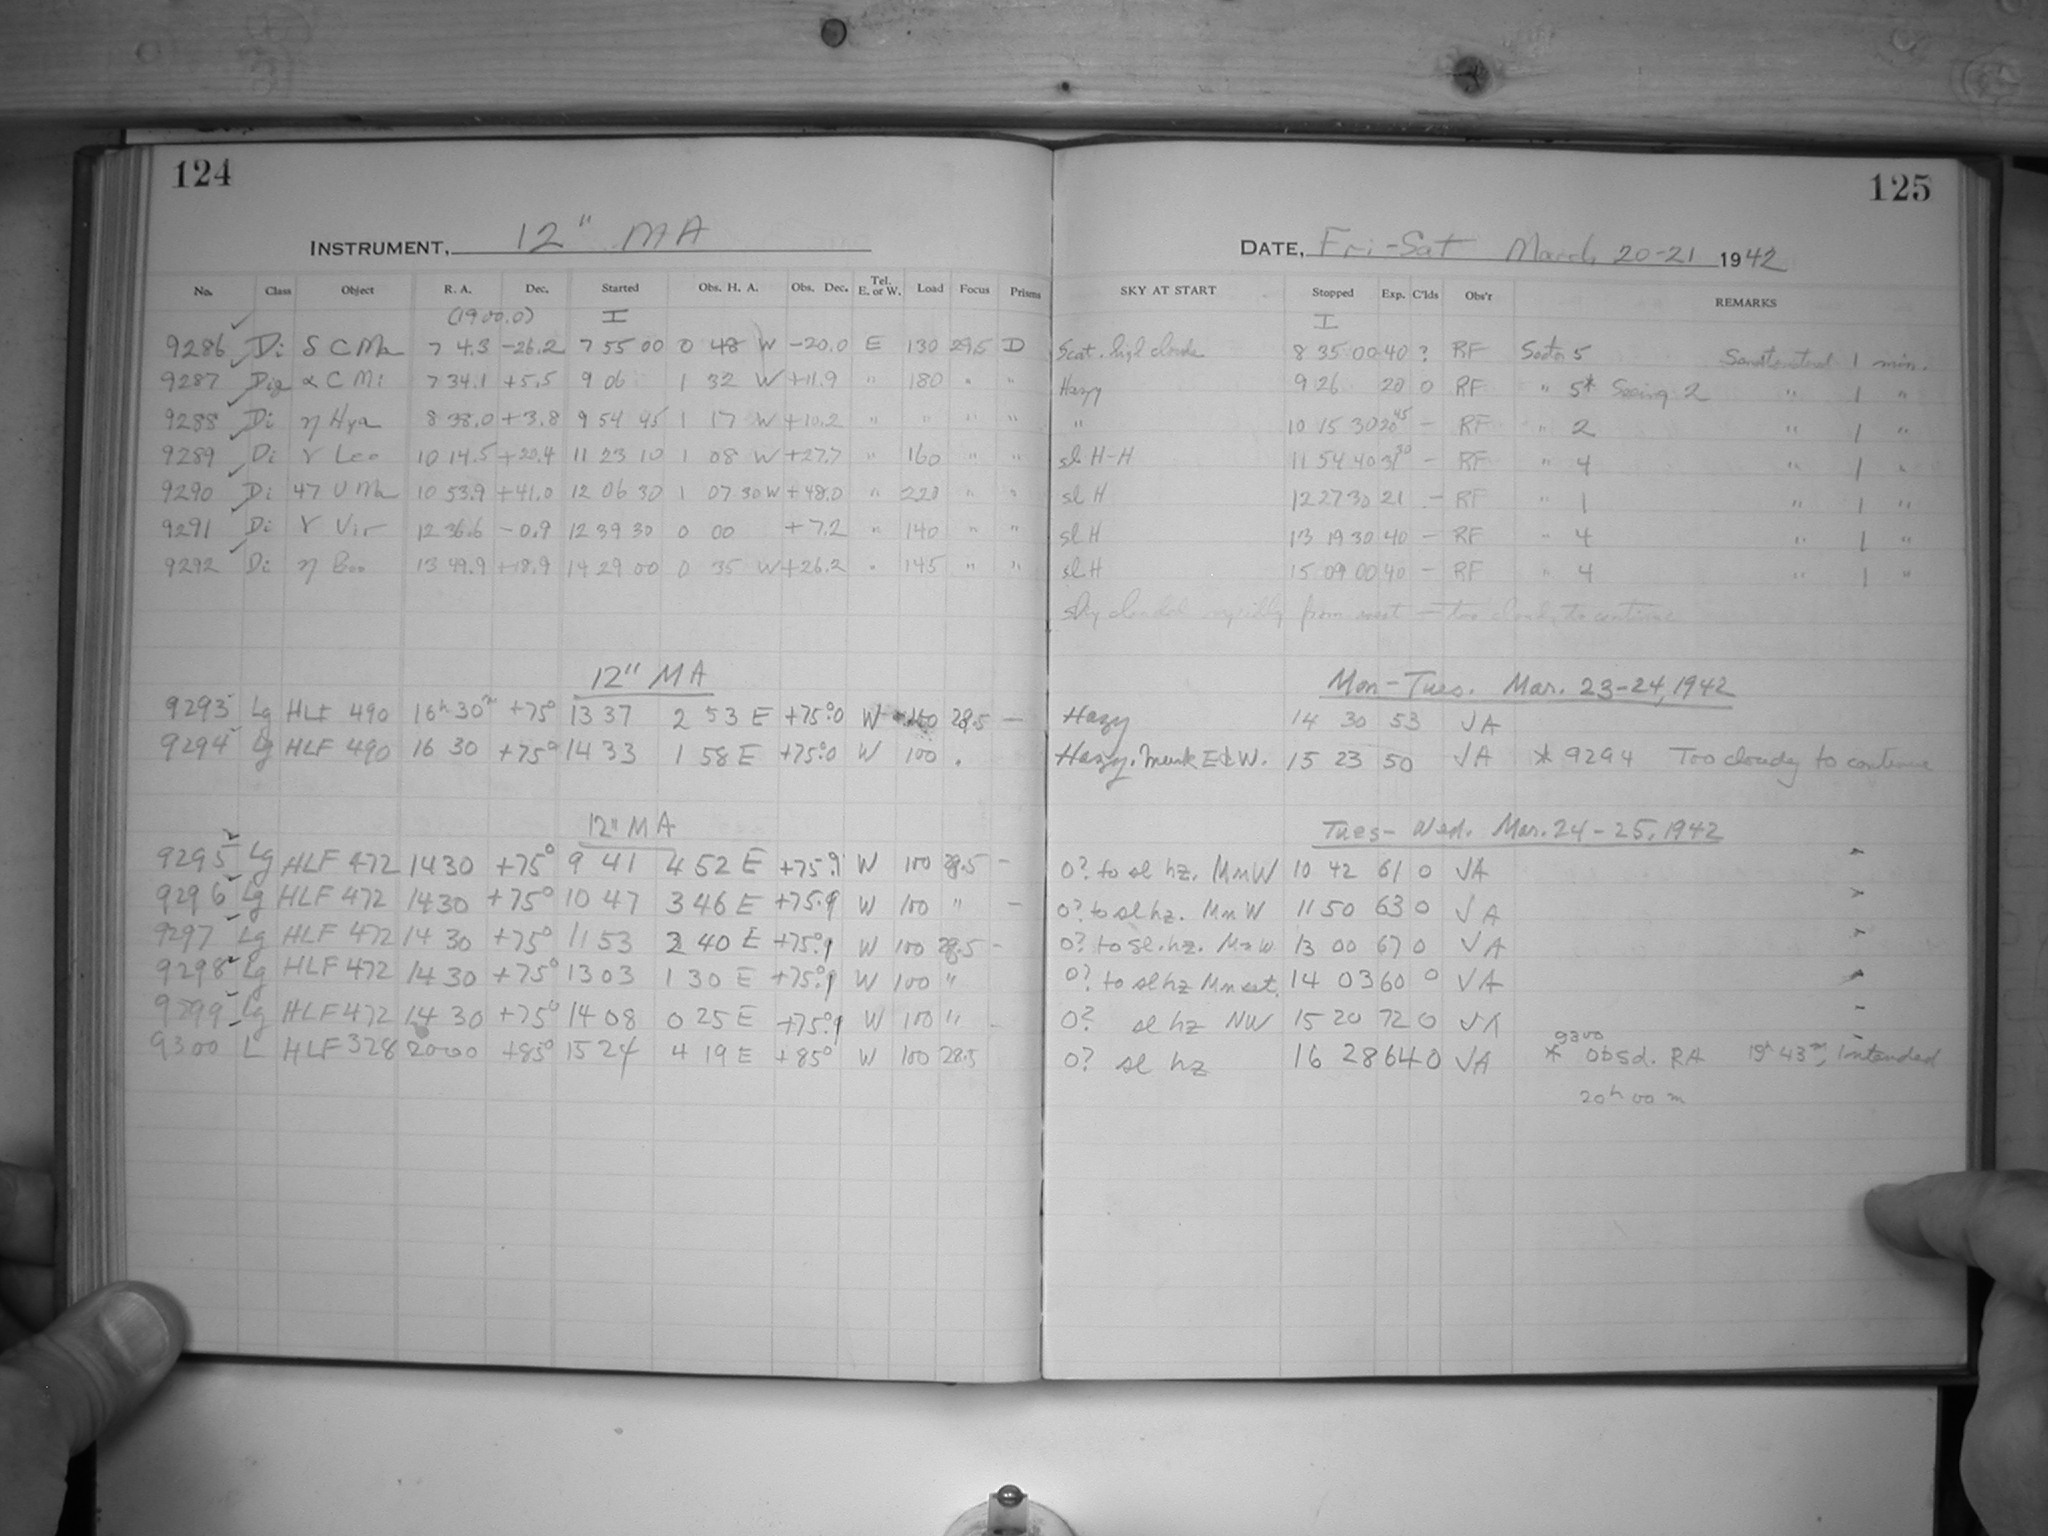 124
INSTRUMENT, 12" MA
No. Class Object R. A. Dec. Started Obs. H. A. Obs. Dec. Tel. E. or W. Load Focus Prisms
(1900.0) I
9286 Di δ C Ma 7 4.3 -26.2 7 55 00 0 48 W -20.0 E 130 29.5 D
9287 Di α C Mi 7 34.1 +5.5 9 06 1 32 W +11.9 " 180 " "
9288 Di η Hya 8 38.0 +3.8 9 54 45 1 17 W +10.2 " " " "
9289 Di γ Leo 10 14.5 +20.4 11 23 10 1 08 W +27.7 " 160 " "
9290 Di 47 U Ma 10 53.9 +41.0 12 06 30 1 07 30 W +48.0 " 220 " "
9291 Di γ Vir 12 36.6 -0.9 12 39 30 0 00 +7.2 " 140 " "
9292 Di η Boo 13 49.9 +18.9 14 29 00 0 35 W +26.2 " 145 " "
12" MA
9293 Lg HLF 490 16h 30m +75° 13 37 2 53 E +75°.0 W 28.5 —
9294 Lg HLF 490 16 30 +75° 14 33 1 58 E +75°.0 W 100 "
12" MA
9295 Lg HLF 472 14 30 +75° 9 41 4 52 E +75.9 W 100 28.5 -
9296 Lg HLF 472 14 30 +75° 10 47 3 46 E +75.9 W 100 " -
9297 Lg HLF 472 14 30 +75° 11 53 2 40 E +75°.9 W 100 28.5 -
9298 Lg HLF 472 14 30 +75° 13 03 1 30 E +75°.9 W 100 "
9299 Lg HLF 472 14 30 +75° 14 08 0 25 E +75°.9 W 100 "
9300 L HLF 328 2000 +85° 15 24 4 19 E +85° W 100 28.5
125
DATE, Fri-Sat March 20-21 1942
SKY AT START Stopped Exp. C'lds Obs'r REMARKS
I
Scat. high clouds 8 35 00 40 ? RF Sector 5 1 min.
Hazy 9 26 20 0 RF " 5* Seeing 2 " 1 "
" 10 15 30 20 45 - RF " 2 " 1 "
sl H-H 11 54 40 31 30 - RF " 4 " 1 "
sl H 12 27 30 21 - RF " 1 " 1 "
sl H 13 19 30 40 - RF " 4 " 1 "
sl H 15 09 00 40 - RF " 4 " 1 "
Sky clouded rapidly from west — too cloudy to continue
Mon-Tues. Mar. 23-24, 1942
Hazy 14 30 53 JA
Hazy. E & W. 15 23 50 JA * 9294 Too cloudy to continue
Tues-Wed. Mar. 24-25, 1942
0? to sl hz. Mn W 10 42 61 0 JA
0? to sl hz. Mn W 11 50 63 0 JA
0? to sl. hz. Mn W 13 00 67 0 JA
0? to sl hz Mn set. 14 03 60 0 JA
0? sl hz NW 15 20 72 0 JA
0? sl hz 16 28 64 0 JA * 9300 Obsd. RA 19h 43m, Intended
20h 00 m